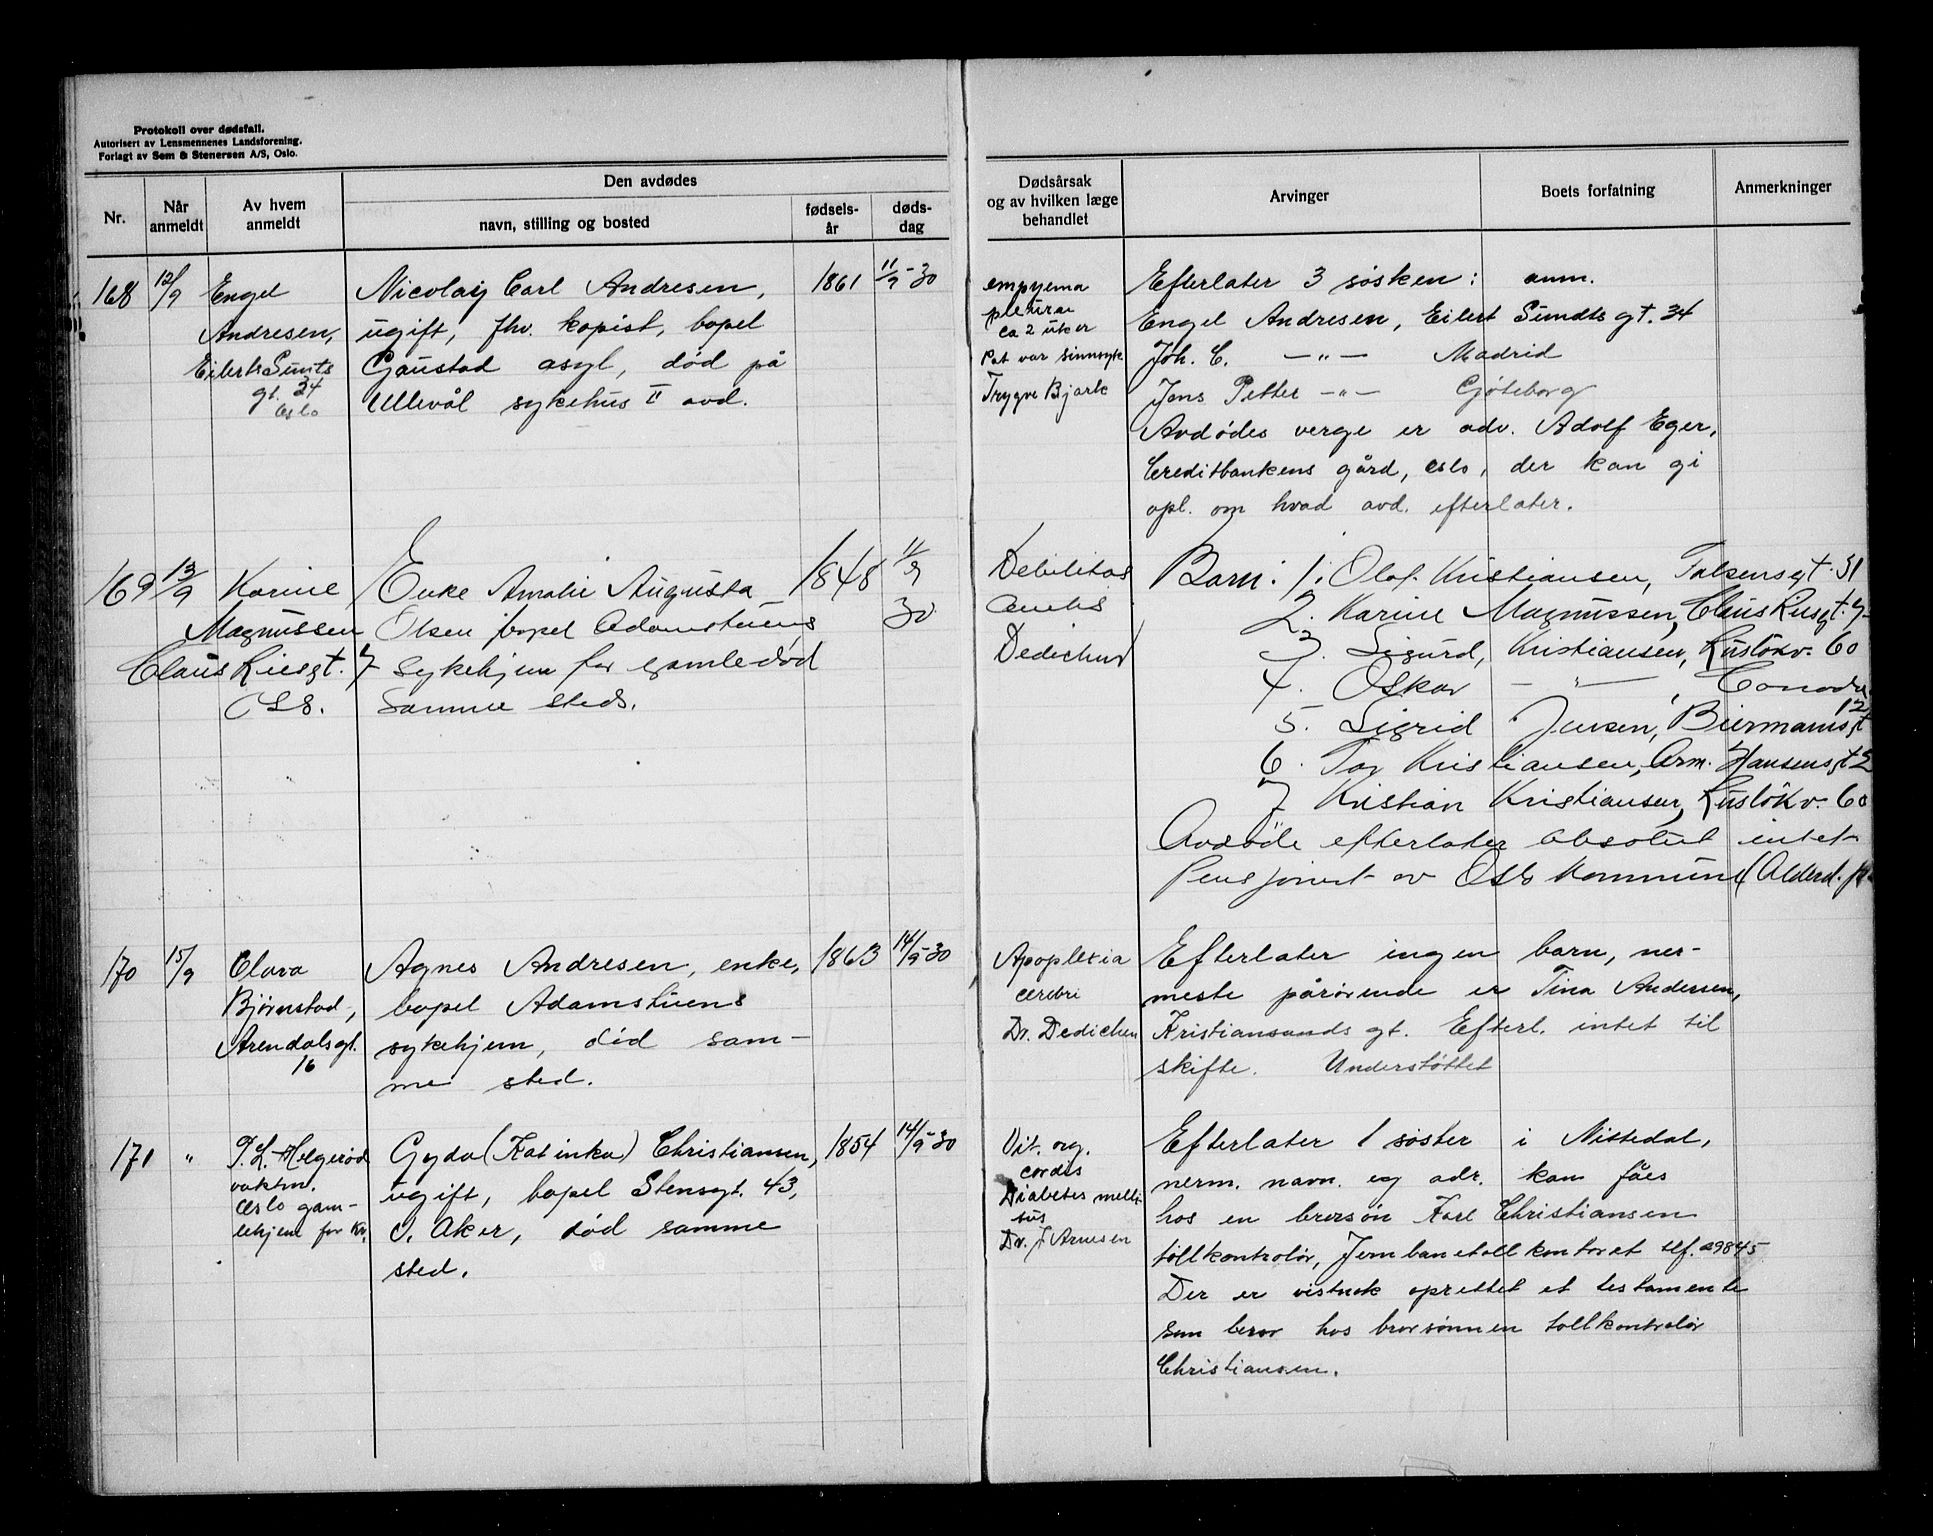 Protokoll over dødsfall.
Autorisert av Lensmennenes Landsforening.
Forlagt av Sem & Stenersen A/S, Oslo.
Nr.
Når anmeldt
Av hvem anmeldt
Den avdødes
navn, stilling og bosted
fødsels-år
døds-dag
Dødsårsak og av hvilken læge behandlet
Arvinger
Boets forfatning
Anmerkninger
168
12/9
Engel
Andresen,
Eilert Sunts
gt. 34
Oslo
Nicolaij Carl Andresen,
ugift, fhv. kopist, bopel
Gaustad asyl, død på
Ullevål sykehus II avd.
1861
11/9-30
empyema
pleurae
ca 2 uker
Pat var sinnsyk
Trygve Bjark
Efterlater 3 søsken: anm.
Engel Andresen, Eilert Sundts gt. 34
Joh. C. —"— Madrid
Jens Petter —"— Gøteborg
Avdødes verge er adv. Adolf Eger,
Creditbankens gård, Oslo, der kan gi
opl. om hvad avd. efterlater.
169
13/9
Karine
Magnussen
Claus Riisgt. 7
Oslo.
Enke Amalie Augusta
Olsen bopel Adamstuens
Sykehjem for gamle død
Samme steds.
1848
11/9
30
Debilitas
Dedichen
Barn: 1. Olaf Kristiansen, Falsensgt. 31
2. Karine Magnussen, Claus Riisgt. 7
3. Sigurd, Kristiansen, Rusløkv. 60
4. Oskar —"—, Canada
5. Sigrid Jensen, Biermannsgt 12
6. Tor Kristiansen, Arm. Hansensgt 2
7 Kristian Kristiansen, Rusløkv. 60
Avdøde efterlater absolut intet
Pensjonist av Oslo Kommune (Alderd.
170
15/9
Clara
Bjørnstad,
Arendalsgt.
16
Agnes Andresen, enke,
bopel Adamstuens
sykehjem, død sam-
me sted.
1863
14/9-30
Apoplexia
cerebri
Dr. Dedichen
Efterlater ingen barn, nær-
meste pårørende er Tina Andersen,
Kristiansands gt. Efterl. intet til
skifte. Understøttet
171
"
P. L. Helgerød
vaktm.
Oslo gam-
lehjem for kv.
Gyda (Katinka) Christiansen,
ugift, bopel Stensgt. 43,
V. Aker, død samme
sted.
1854
14/9-30
Vit. org.
cordis
Diabetes melli-
tus
Dr. J Arnesen
Efterlater 1 søster i Nittedal,
nerm. navn og adr. kan fåes
hos en brorsøn Karl Christiansen
tollkontrolør, Jernbanetollkontoret tlf. 29845
Der er vistnok oprettet et testamente
som beror hos brorsønnen tollkontrolør
Christiansen.